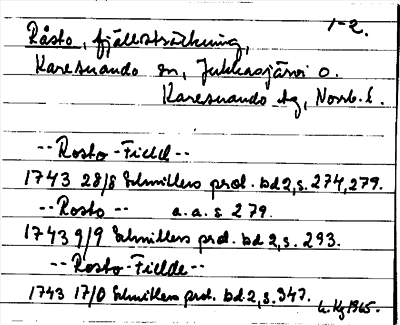 1-2.
Råsto, fjällsträckning,
Karesuando sn, Jukkasjärvi o.
Karesuando tg, Norrb. l.
-- Rosto-Field --
1743 28/8 Schnitlers prot. bd 2, s. 274, 279.
-- Rosto -- a. a. s 279.
1743 9/9 Schnitlers prot. bd 2, s. 293.
-- Rosto-Fielde --
1743 17/0 Schnitlers prot. bd 2, s. 347.
1965.